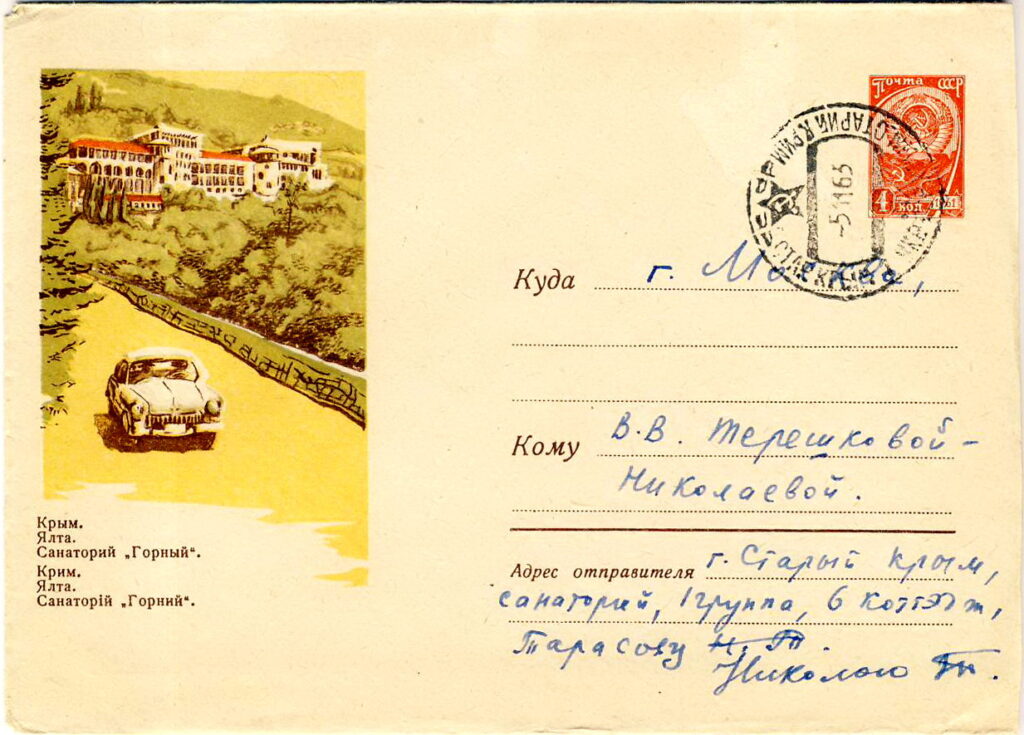 Почта СССР
4 коп 1961
СТАРИЙ КРИМ
-5 11 63
СТАР КРЫМ
Куда г. Москва,
Кому В. В. Терешковой-
Николаевой.
Крым.
Ялта.
Санаторий „Горный“.
Крим.
Ялта.
Санаторій „Горний“.
Адрес отправителя г. Старый Крым,
санаторий, 1 группа, 6 коттэдж,
Тарасову Н. Т.
Николаю Т.